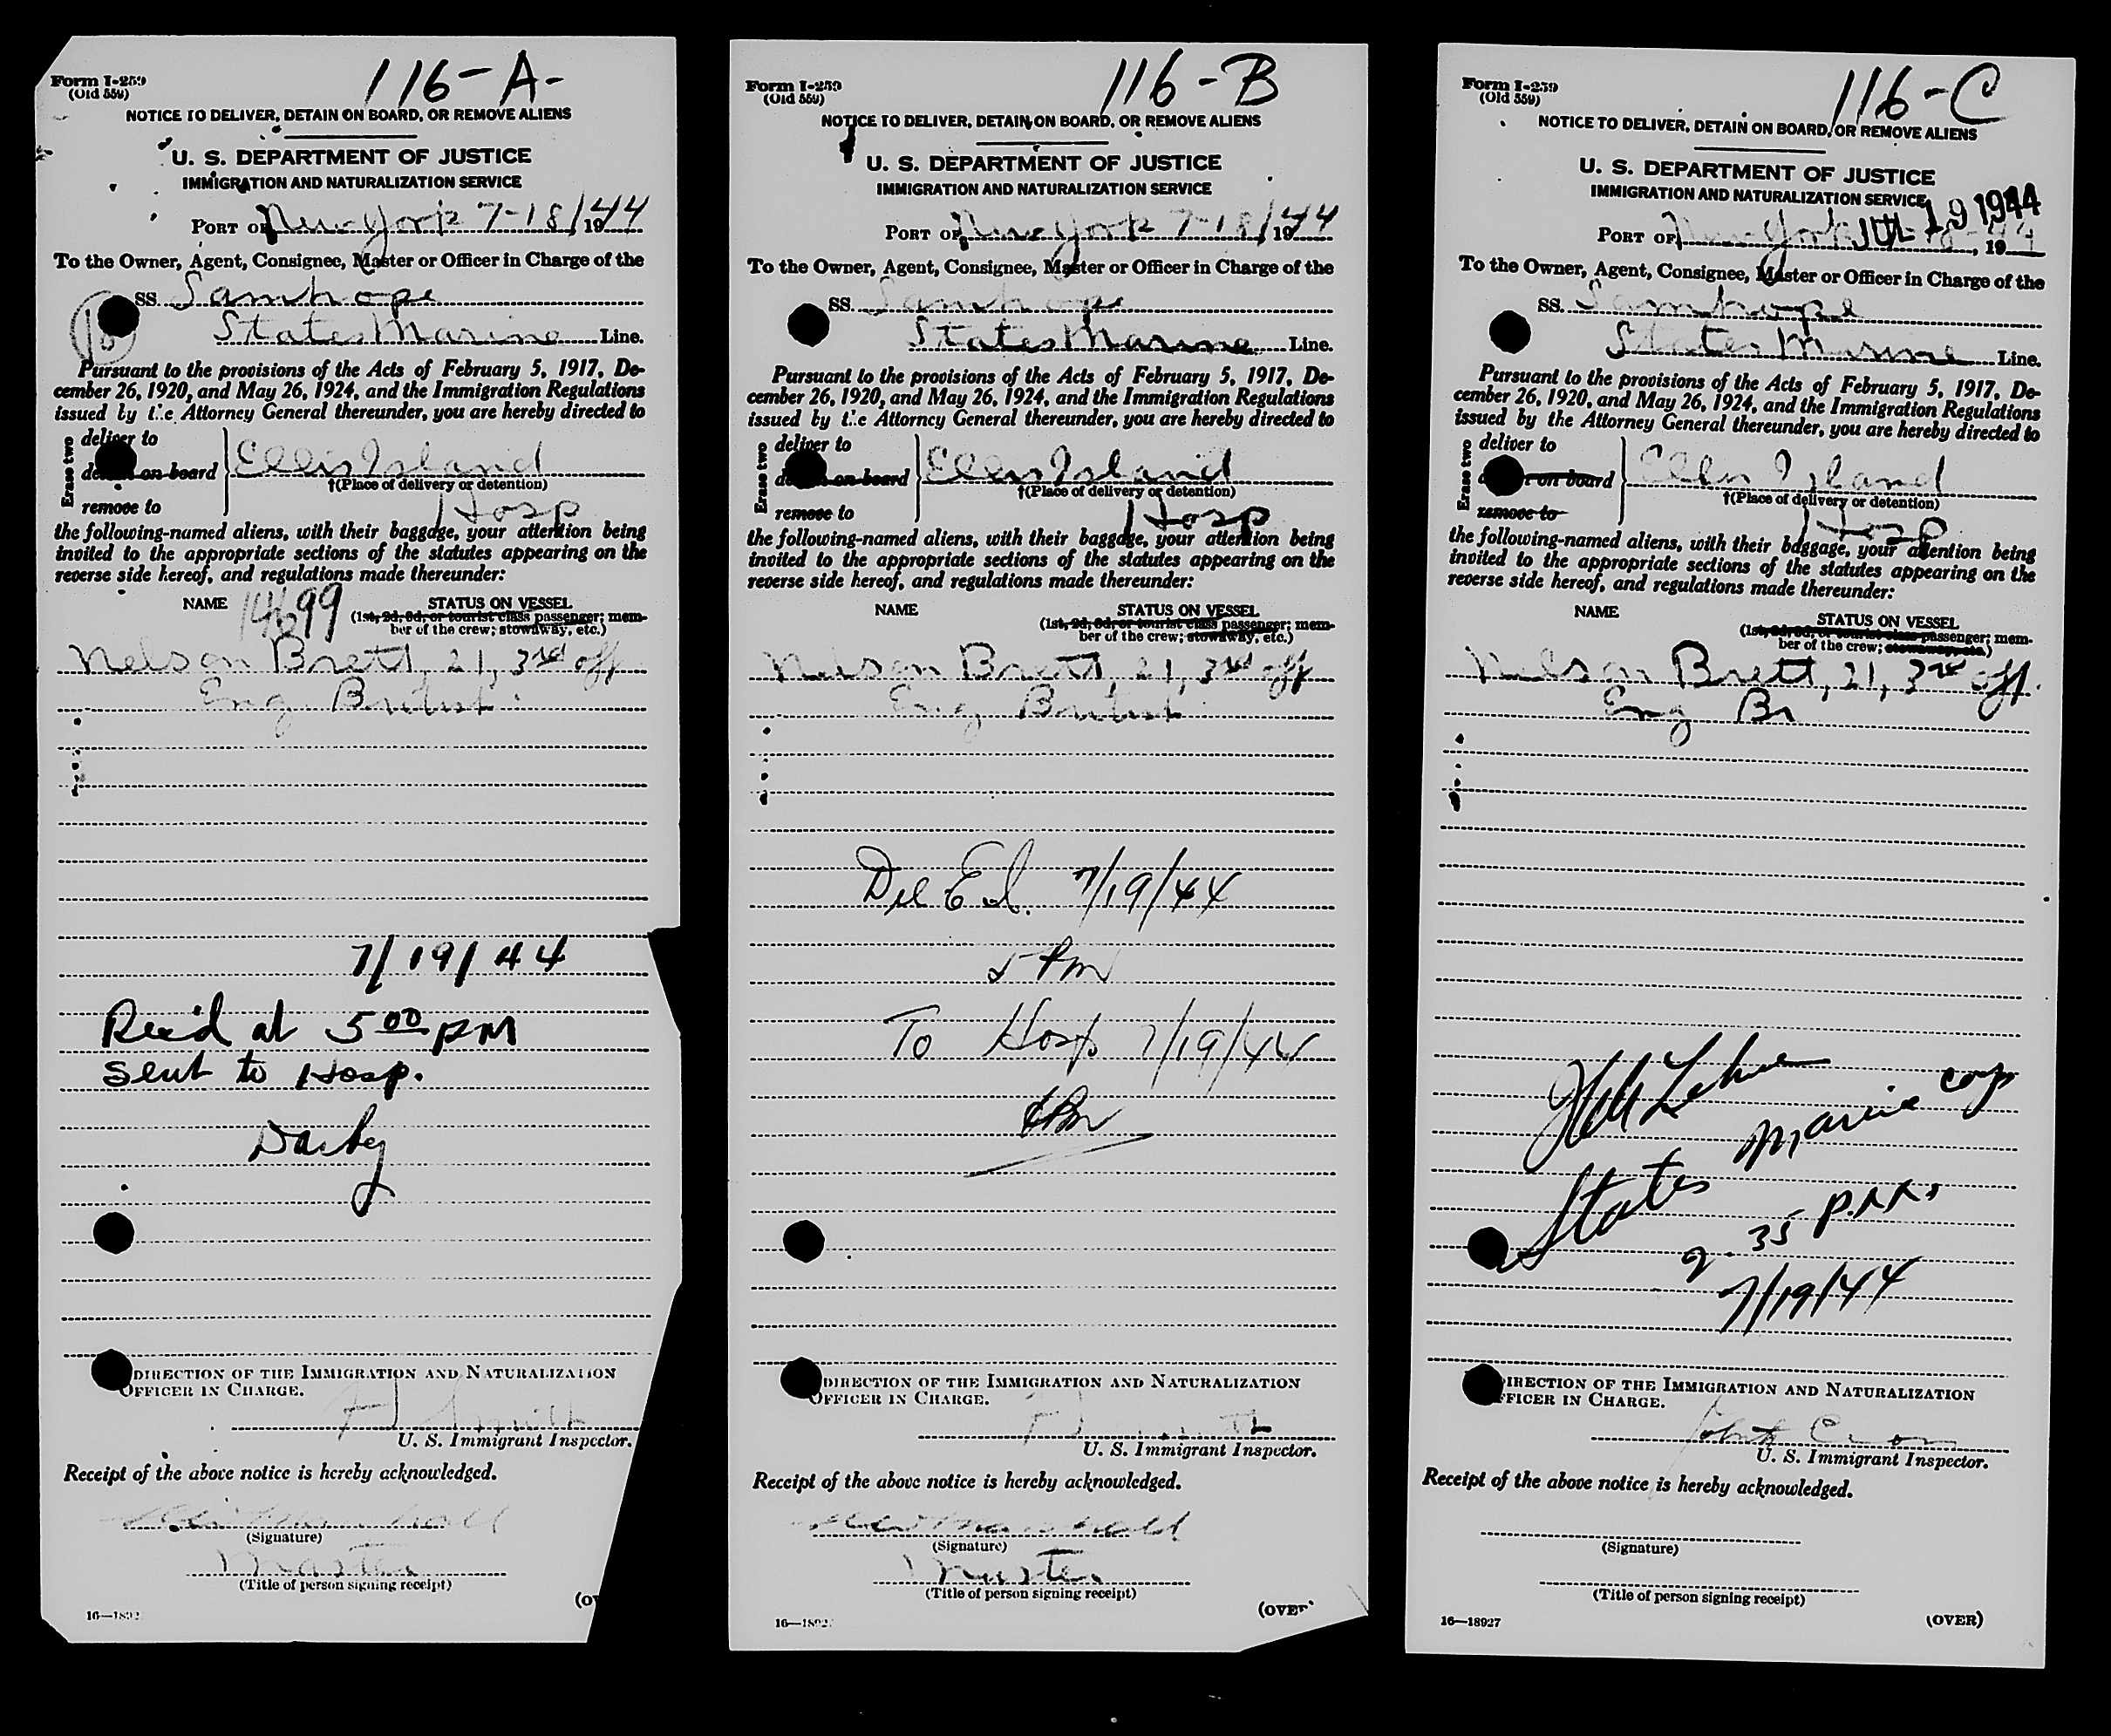 116-A-
Form I-259
(Old 559)
NOTICE TO DELIVER, DETAIN ON BOARD, OR REMOVE ALIENS
U. S. DEPARTMENT OF JUSTICE
IMMIGRATION AND NATURALIZATION SERVICE
PORT OF New York 7-18/ 1944
To the Owner, Agent, Consignee, Master or Officer in Charge of the
SS. Samhope
States Marine Line.
Pursuant to the provisions of the Acts of February 5, 1917, De-
cember 26, 1920, and May 26, 1924, and the Immigration Regulations
issued by the Attorney General thereunder, you are hereby directed to
Erase two
deliver to
on board
remove to
Ellis Island
†(Place of delivery or detention)
Hosp
the following-named aliens, with their baggage, your attention being
invited to the appropriate sections of the statutes appearing on the
reverse side hereof, and regulations made thereunder:
NAME 14699 STATUS ON VESSEL
(1st, 2d, 3d, or tourist class passenger; mem-
ber of the crew; stowaway, etc.)
Nelson Brett, 21, 3rd off
Eng British
7/19/44
Rec'd at 5 00 PM
Sent to Hosp.
Darby
DIRECTION OF THE IMMIGRATION AND NATURALIZATION
OFFICER IN CHARGE.
Smith
U. S. Immigrant Inspector.
Receipt of the above notice is hereby acknowledged.
(Signature)
Master
(Title of person signing receipt)
16—1892
116-B
Form I-259
(Old 559)
NOTICE TO DELIVER, DETAIN ON BOARD, OR REMOVE ALIENS
U. S. DEPARTMENT OF JUSTICE
IMMIGRATION AND NATURALIZATION SERVICE
PORT OF New York 7-18/ 1944
To the Owner, Agent, Consignee, Master or Officer in Charge of the
SS. Samhope
States Marine Line.
Pursuant to the provisions of the Acts of February 5, 1917, De-
cember 26, 1920, and May 26, 1924, and the Immigration Regulations
issued by the Attorney General thereunder, you are hereby directed to
Erase two
deliver to
on board
remove to
Ellis Island
†(Place of delivery or detention)
Hosp
the following-named aliens, with their baggage, your attention being
invited to the appropriate sections of the statutes appearing on the
reverse side hereof, and regulations made thereunder:
NAME STATUS ON VESSEL
(1st, 2d, 3d, or tourist class passenger; mem-
ber of the crew; stowaway, etc.)
Nelson Brett, 21, 3rd off
Eng British
Del E.I. 7/19/44
5 PM
To Hosp 7/19/44
DIRECTION OF THE IMMIGRATION AND NATURALIZATION
OFFICER IN CHARGE.
U. S. Immigrant Inspector.
Receipt of the above notice is hereby acknowledged.
(Signature)
Master
(Title of person signing receipt)
(OVER)
16—1892
116-C
Form I-259
(Old 559)
NOTICE TO DELIVER, DETAIN ON BOARD, OR REMOVE ALIENS
U. S. DEPARTMENT OF JUSTICE
IMMIGRATION AND NATURALIZATION SERVICE
JUL 19 1944
PORT OF New York 1944
To the Owner, Agent, Consignee, Master or Officer in Charge of the
SS. Samhope
States Marine Line.
Pursuant to the provisions of the Acts of February 5, 1917, De-
cember 26, 1920, and May 26, 1924, and the Immigration Regulations
issued by the Attorney General thereunder, you are hereby directed to
Erase two
deliver to
on board
remove to
Ellis Island
†(Place of delivery or detention)
Hosp
the following-named aliens, with their baggage, your attention being
invited to the appropriate sections of the statutes appearing on the
reverse side hereof, and regulations made thereunder:
NAME STATUS ON VESSEL
(1st, 2d, 3d, or tourist class passenger; mem-
ber of the crew; stowaway, etc.)
Nelson Brett, 21, 3rd off.
Eng Br
States Marine Corp
2.35 P.M.
7/19/44
DIRECTION OF THE IMMIGRATION AND NATURALIZATION
OFFICER IN CHARGE.
U. S. Immigrant Inspector.
Receipt of the above notice is hereby acknowledged.
(Signature)
(Title of person signing receipt)
16—18927
(OVER)